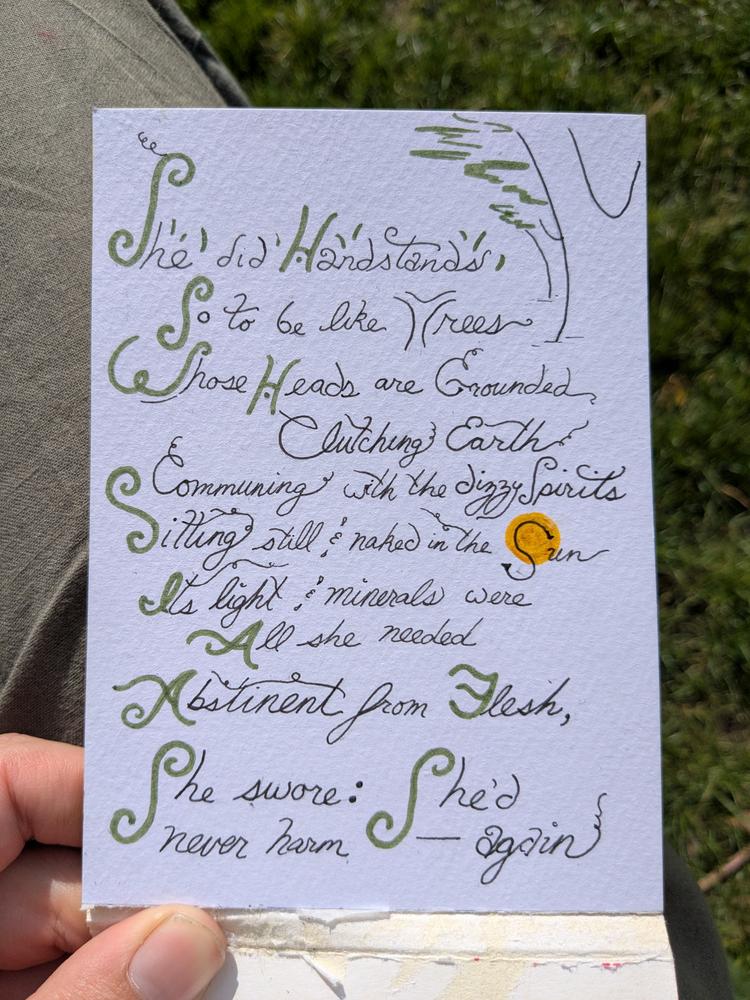 She did Handstands,
So to be like Trees
Whose Heads are Grounded
Clutching Earth
Communing with the dizzy Spirits
Sitting still & naked in the Sun
Its light & minerals were
All she needed
Abstinent from Flesh,
She swore: She'd
never harm — again